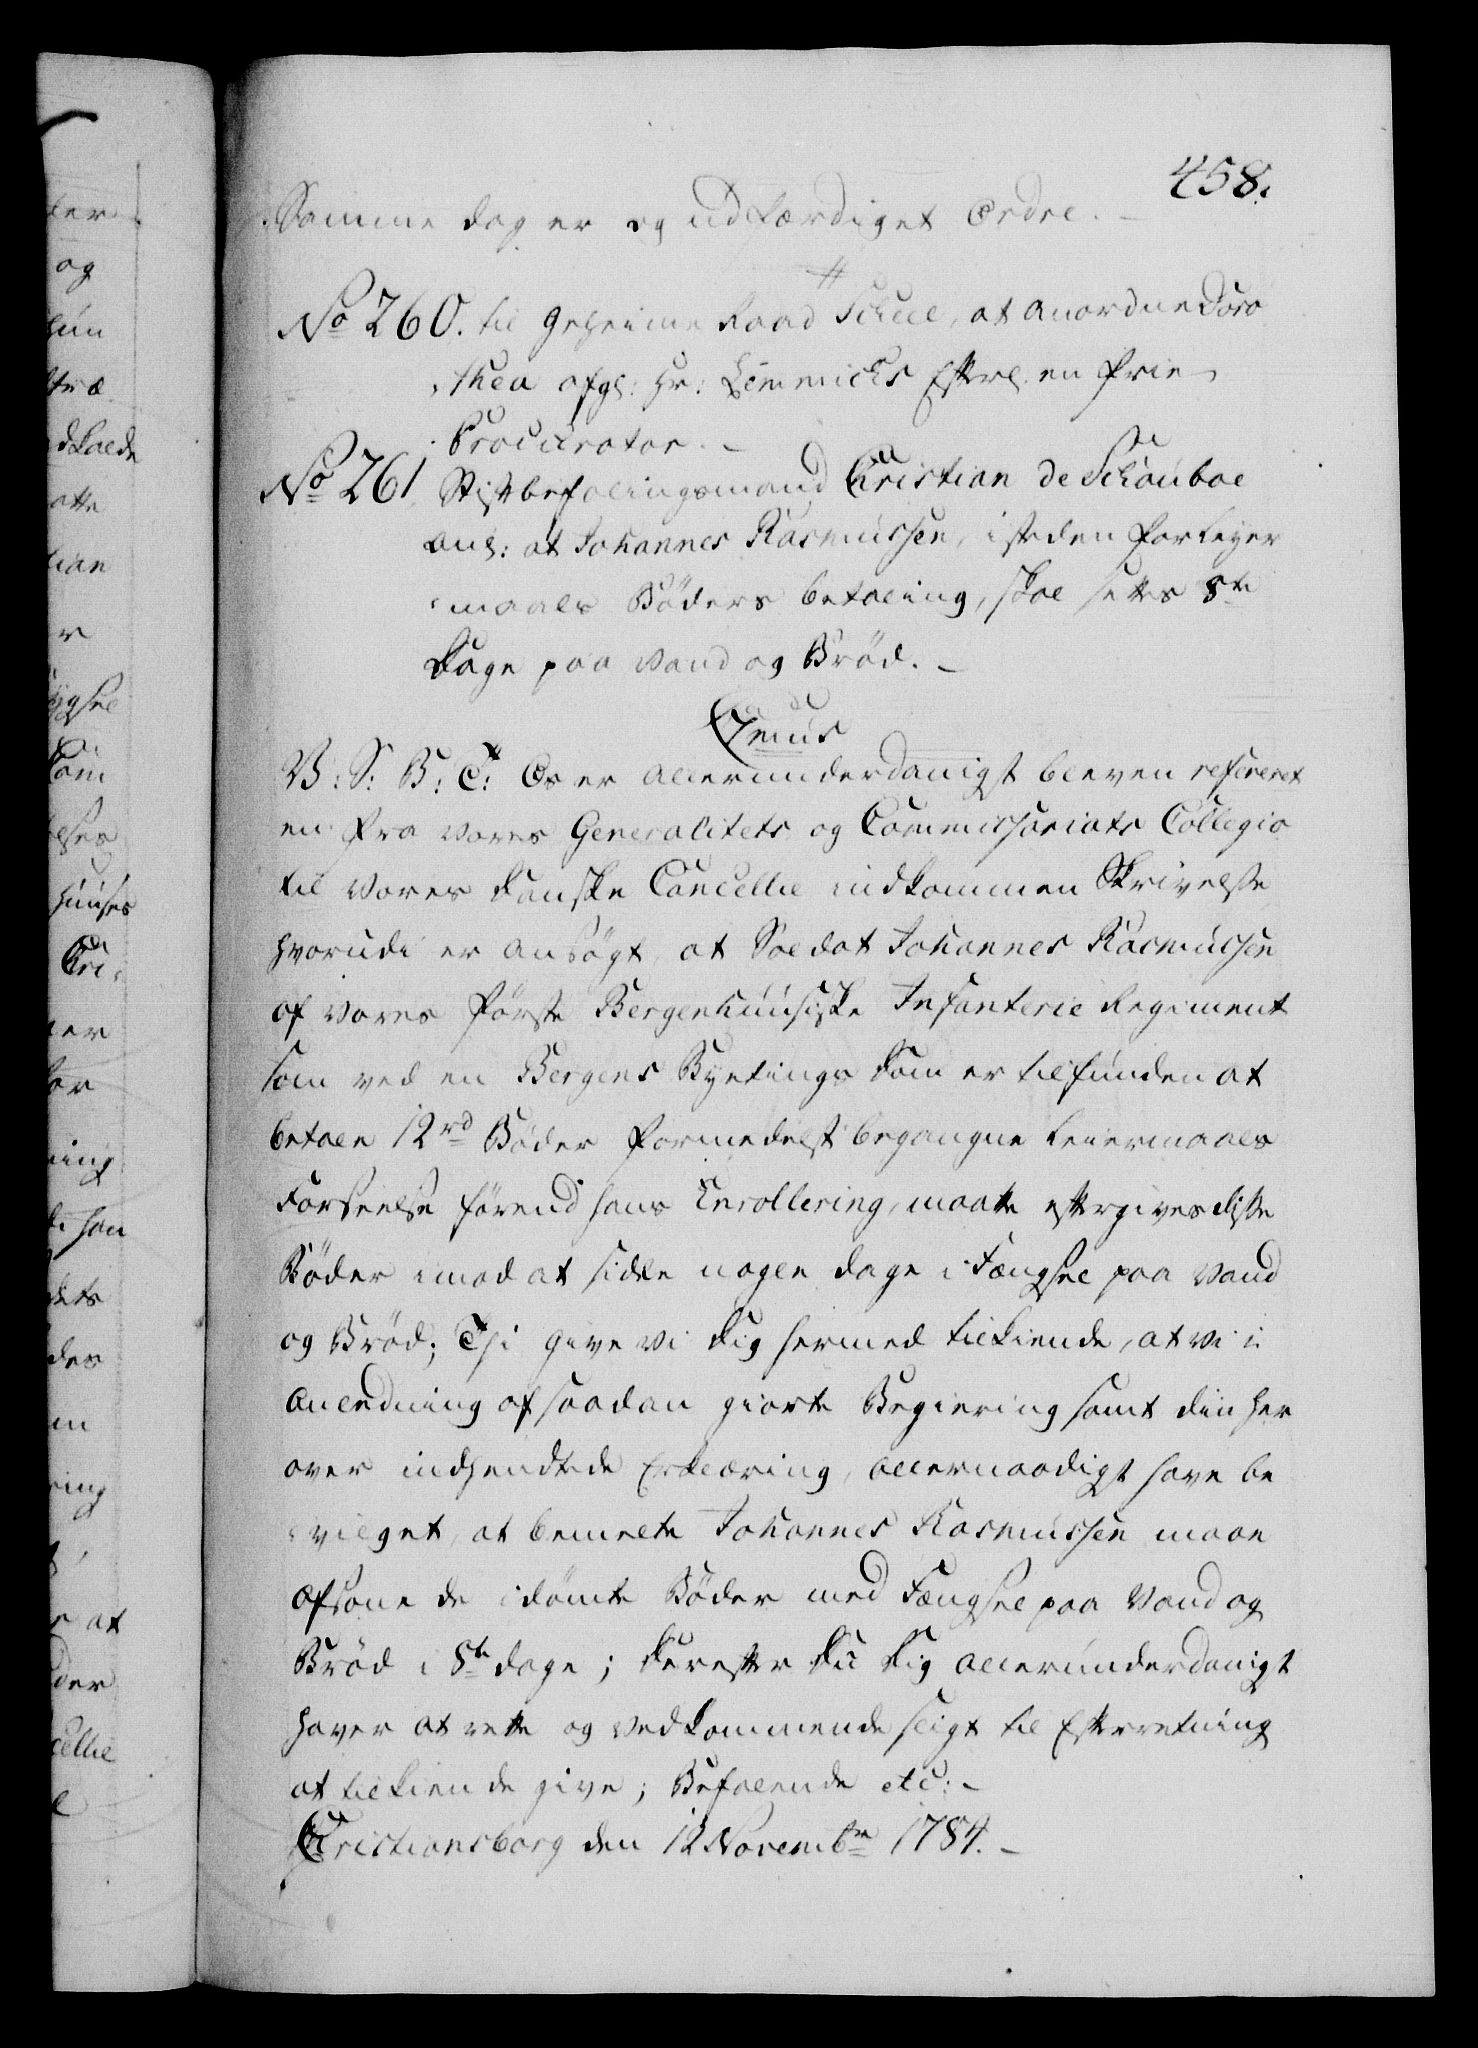 458.
Samme dag er og udfærdiget Ordre. -
No 260. til Geheime Raad Scheel, at anordne Doro
thea afgl: Hr: Lemmichs Efterl. en frie
Procurator. -
No 261 Stiftbefalingsmand Christian de Schouboe
anl: at Johannes Rasmussen, isteden for Leyer
maals Böders betaling, skal settes 8te
Dage paa Vand og Bröd. -
V: S: B: T: Os er allerunderdanigst bleven refereret
en fra Vores Generalitets og Commissariats Collegio
til Vores danske Cancellie indkommen Skrivelse
hvorudi er ansögt, at Soldat Johannes Rasmussen
af Vores förste Bergenhuusiske Infanterie Regiment
som ved en Bergens Byetings Dom er tilfunden at
betale 12rd Böder formedelst begangne Leiermaals
Forseelse förend hans Enrollering, maatte eftergives disse
Böder imod at sidde nogle dage i Fængsel paa Vand
og Bröd; Thi give Vi Dig hermed tilkiende, at Vi i
Anledning af saadan giorte Begiering samt din her
over indhendtede Erklæring, allernaadigst have be
vilget, at bemelte Johannes Rasmussen maae
afsone de idömte Böder med Fængsel paa Vand og
Bröd i 8te dage; Derefter Du Dig allerunderdanigst
haver at rette og Vedkommende sligt til Efterretning
at tilkiende give; Befalende etc: -
Christiansborg den 12 Novembr 1784. -